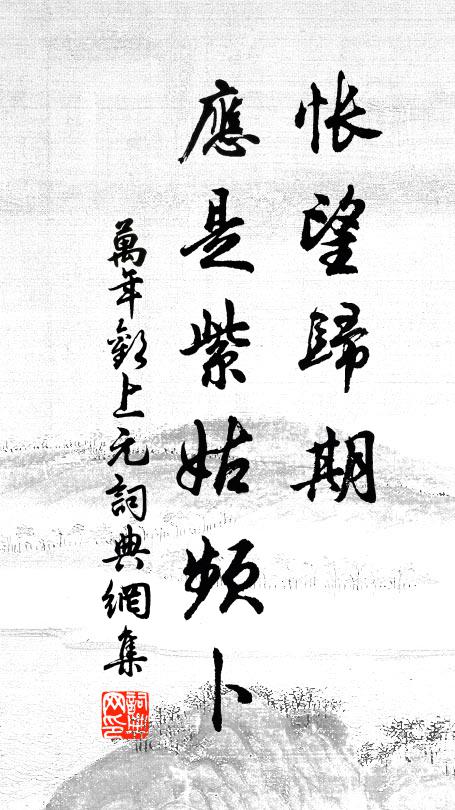 悵望歸期
應是紫姑頻卜
萬年歡上元詞典網集